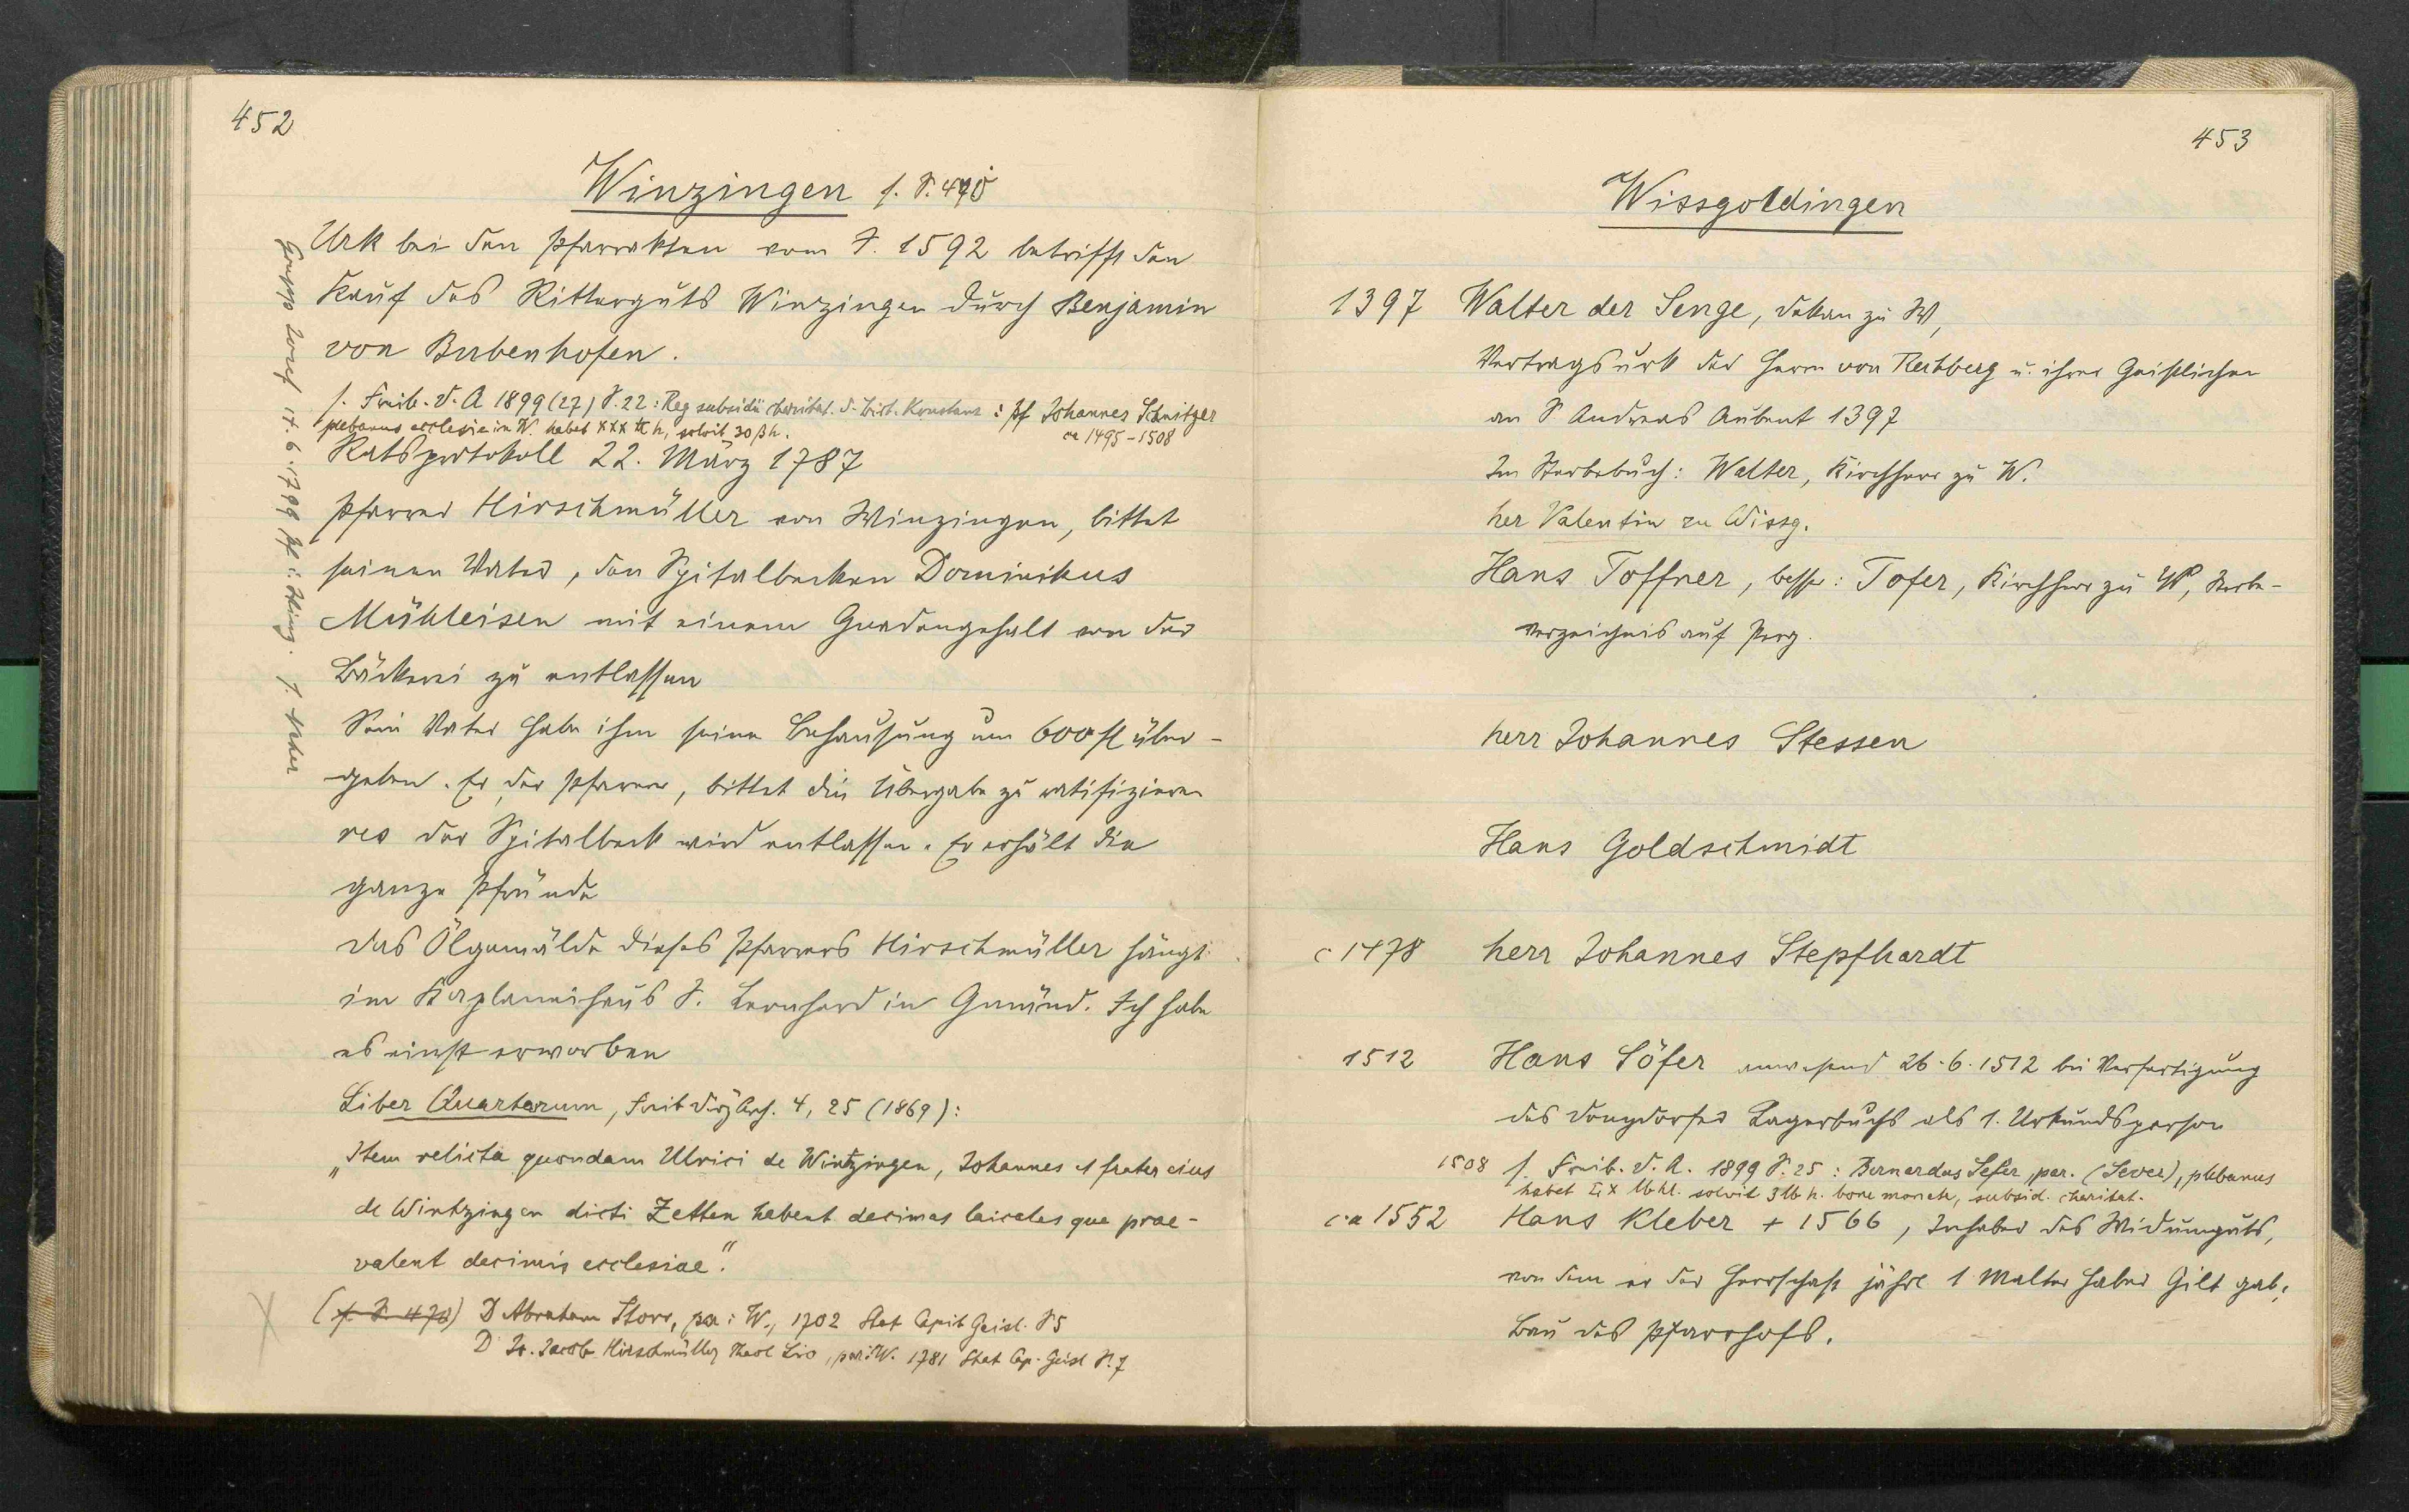 452
Winzingen s. S. 470
Urk bei den Pfarrakten vom J. 1592 betrifft den
Kauf des Ritterguts Winzingen durch Benjamin
von Bubenhofen.
s. Freib. D. A 1899 (27) S. 22: Reg subsidii charitat. d. Bist. Konstanz: Pf Johannes Schnitzer
plebanus ecclesie in W. habet XXX ℔ h, solvit 30 ß h. ca 1495-1508
Ratsprotokoll 22. März 1787
Pfarrer Hirschmüller von Winzingen, bittet
seinen Vater, den Spitalbecken Dominikus
Mühleisen mit einem Gnadengehalt von der
Bäckerei zu entlassen
Sein Vater habe ihm seine Behausung um 600 fl über-
geben. Er, der Pfarrer, bittet die Übergabe zu ratifizieren
res der Spitalbeck wird entlassen. Er erhält die
ganze Pfründe
Das Ölgemälde dieses Pfarrers Hirschmüller hängt
im Kaplaneihaus S. Leonhard in Gmünd. Ich habe
es einst erworben
Liber Quartarum, Freib Diöz Arch. 4, 25 (1869):
„Item relicta quondam Ulrici de Wintzingen, Johannes et frater eius
de Wintzingen dicti Zetten habent decimas laicales que prae-
valent decimis ecclesiae."
(s. S. 470) D Abraham Storr, par: W., 1702 Stat Capit Geisl. S 5
D Jo. Jacob Hirschmüller Theol Lic, par: W. 1781 Stat Cap. Geisl S. 7
Grupp Josef 17.6.1799 Pf. i. Wing. s. Neher
453
Wissgoldingen
1397 Walter der Senge, Dekan zu W,
Vertragsurk der Herrn von Rechberg u. ihrer Geistlichen
an S Andreas Aubent 1397
Im Sterbebuch: Walter, Kirchherr zu W.
her Valentin zu Wissg.
Hans Toffner, besser: Tofer, Kirchherr zu W, Sterbe-
verzeichnis auf Perg.
herr Johannes Stessen
Hans Goldschmidt
c 1478 herr Johannes Stepfhardt
1512 Hans Söfer anwesend 26.6.1512 bei Verfertigung
des Donzdorfer Lagerbuchs als 1. Urkundsperson
1508 s. Freib. D. A. 1899 S. 25: Bernardus Sefer, par. (Sever), plebanus
habet ℔ hl. solvit 3 ℔ h. bone monete, subsid. charitat.
ca 1552 Hans Kleber + 1566, Inhaber des Widumguts,
von dem er der Herrschaft jährl 1 Malter Haber Gilt gab;
Bau des Pfarrhofs.